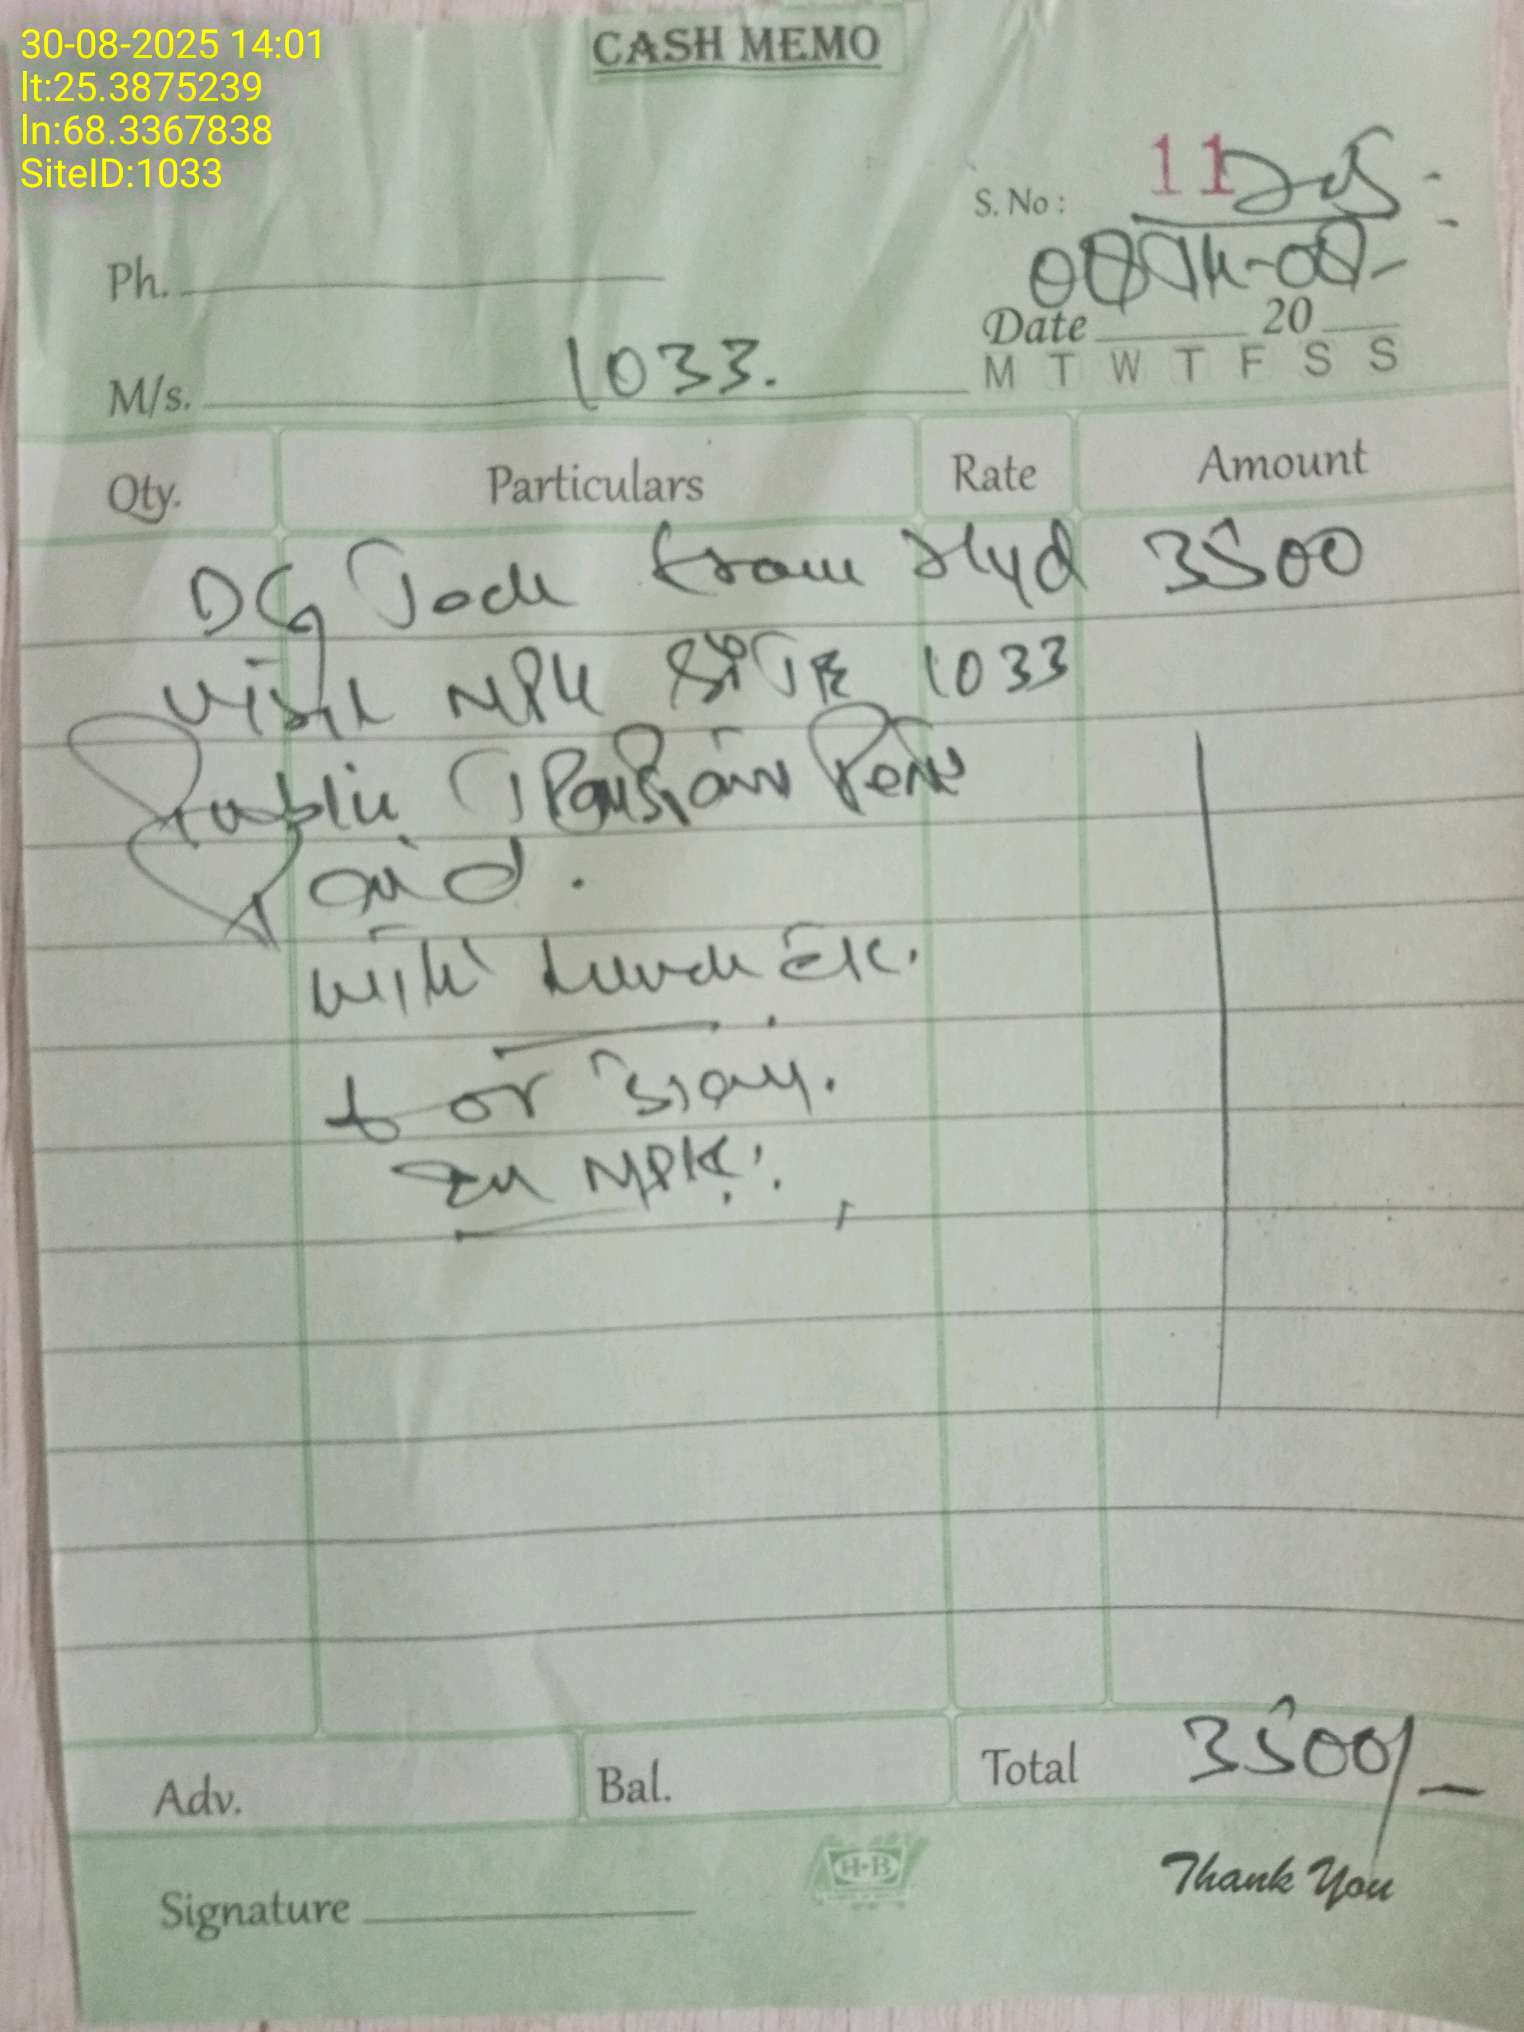 30-08-2025 14:01
lt:25.3875239
ln:68.3367838
SiteID:1033
CASH MEMO
S. No : 11
Ph.
Date 20
M/s. 1033.
M T W T F S S
Qty. Particulars Rate Amount
DG from Hyd 3500
visit NPK SITE 1033
Public
Paid.
with Lunch Etc.
for Stay.
in NPK.
Adv. Bal. Total 3500/-
H-B
Thank You
Signature